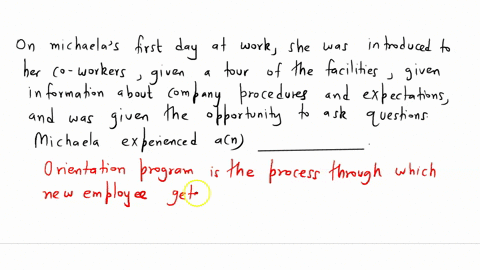 On michaela's first day at work, she was introduced to
her co-workers, given a tour of the facilities, given
information about company procedures and expectations,
and was given the opportunity to ask questions
Michaela experienced a(n) ____________.
Orientation program is the process through which
new employee get